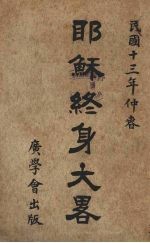 民國十三年仲春
耶穌終身大畧
廣學會出版